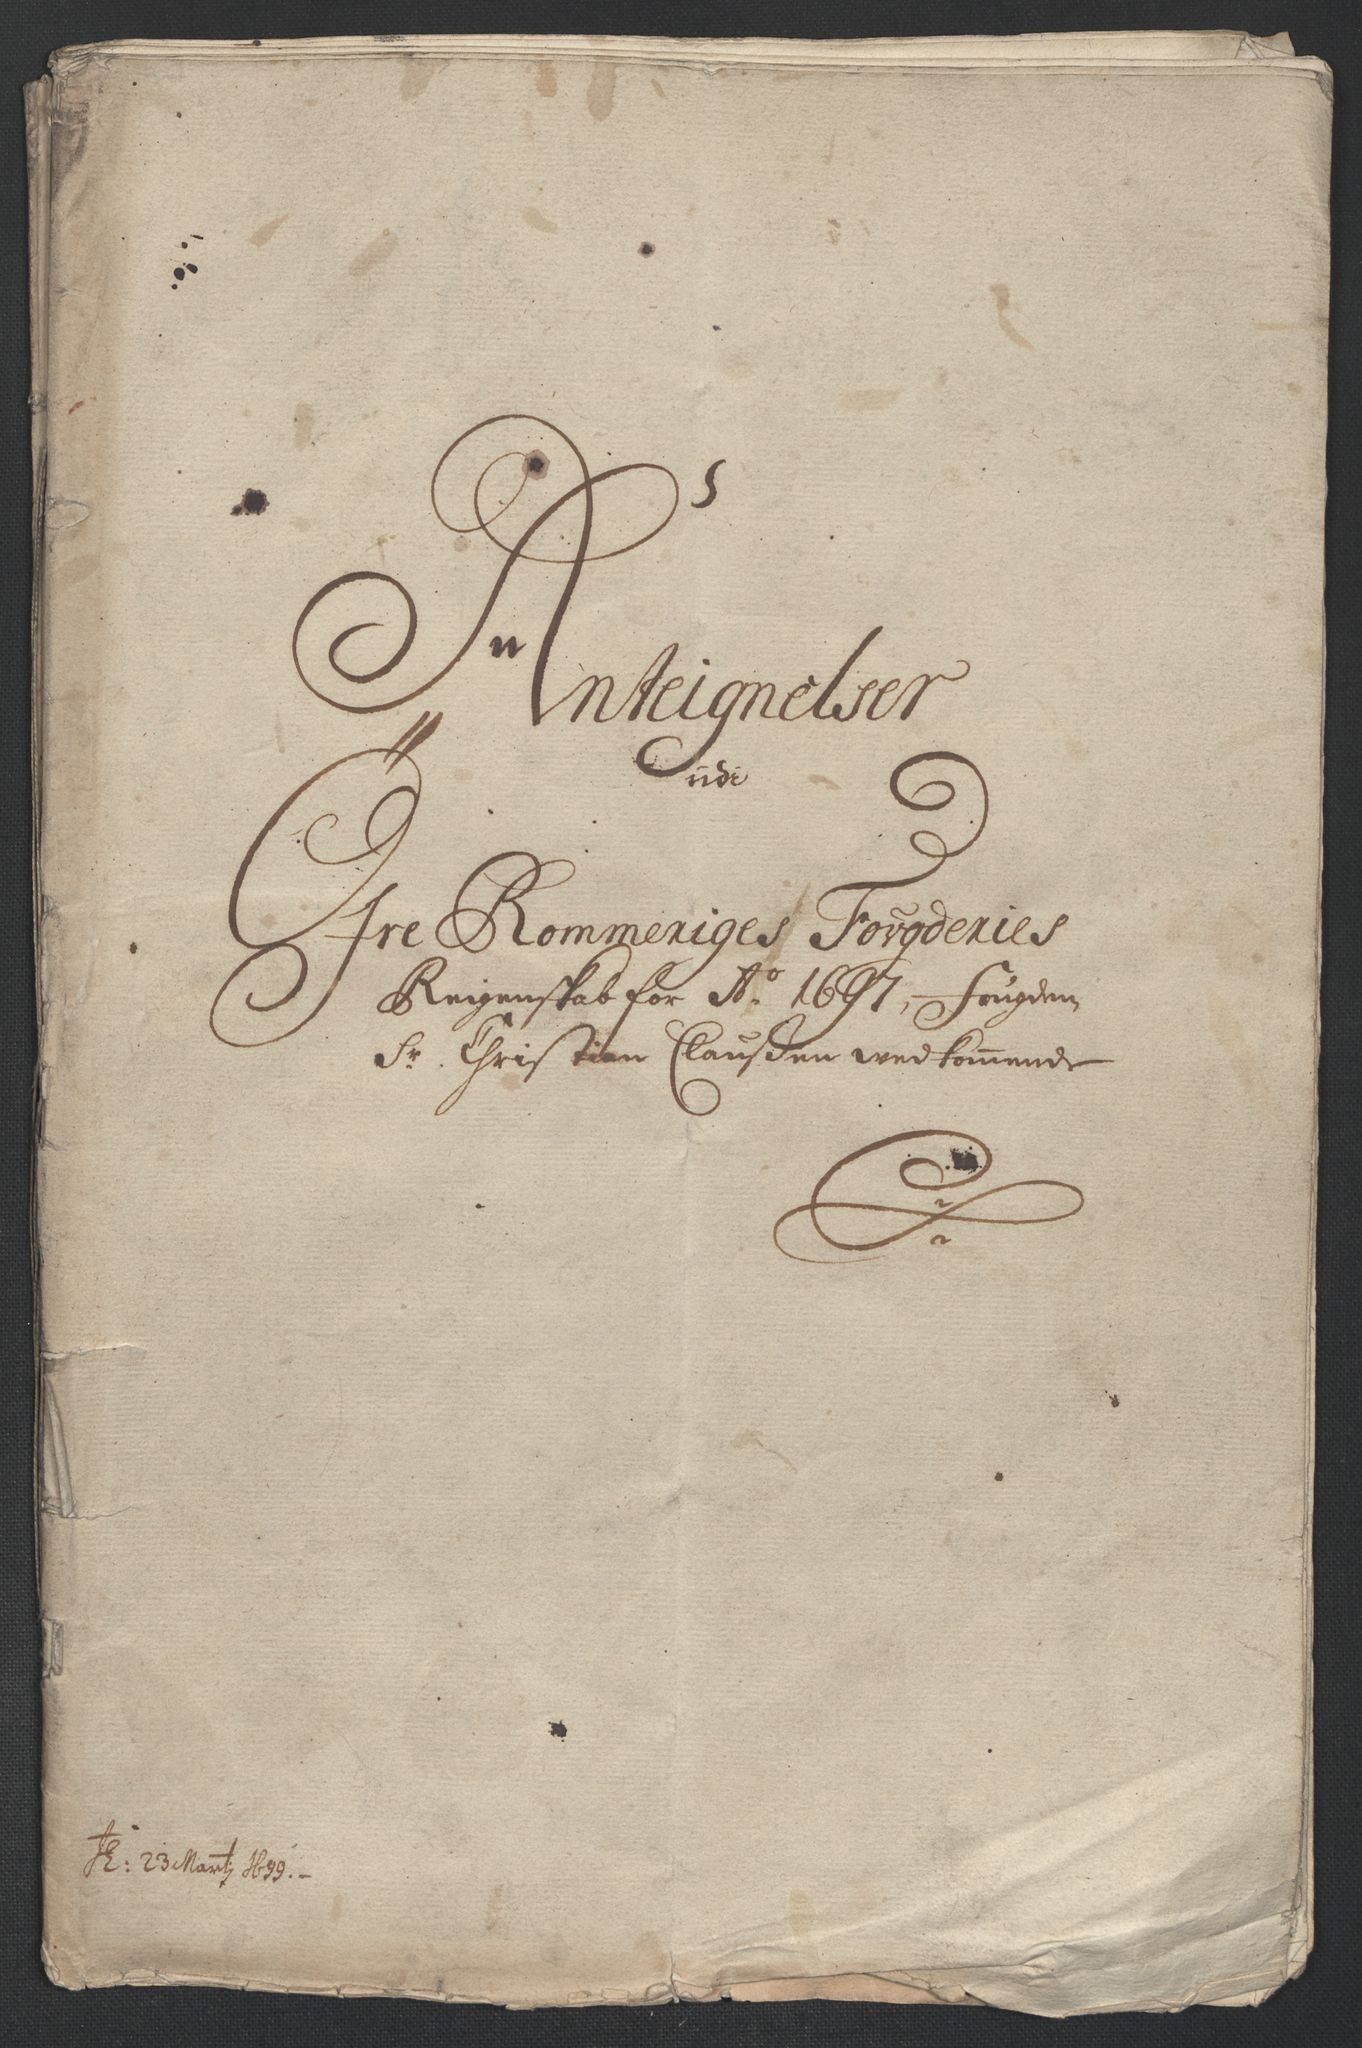 Anteignelser
udi
Øfre Rommeriges Fougderies
Reigenskab for Ao. 1697, Fougden
Sr. Christian Clausßen wedkommende
23 Martj 1699.